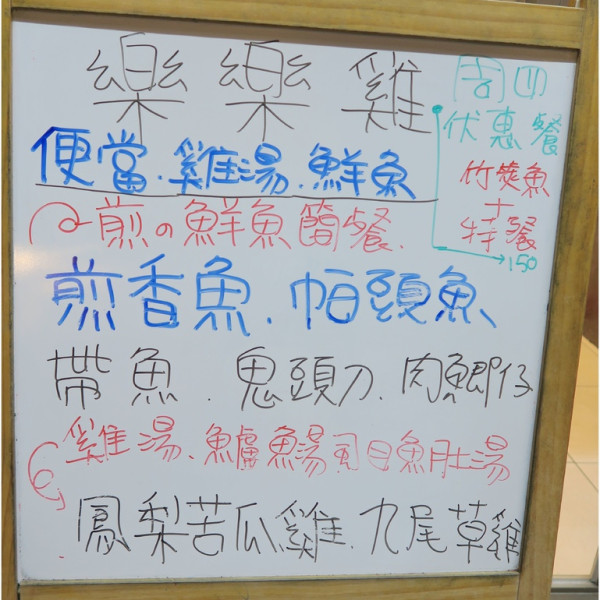 樂樂雞
便當.雞湯.鮮魚
煎の鮮魚簡餐.
煎香魚.帕頭魚
帶魚.鬼頭刀.肉鯽仔
雞湯.鱸魚湯虱目魚肚湯
鳳梨苦瓜雞.九尾草雞
周四
伏惠餐
竹筴魚
+
特餐
150